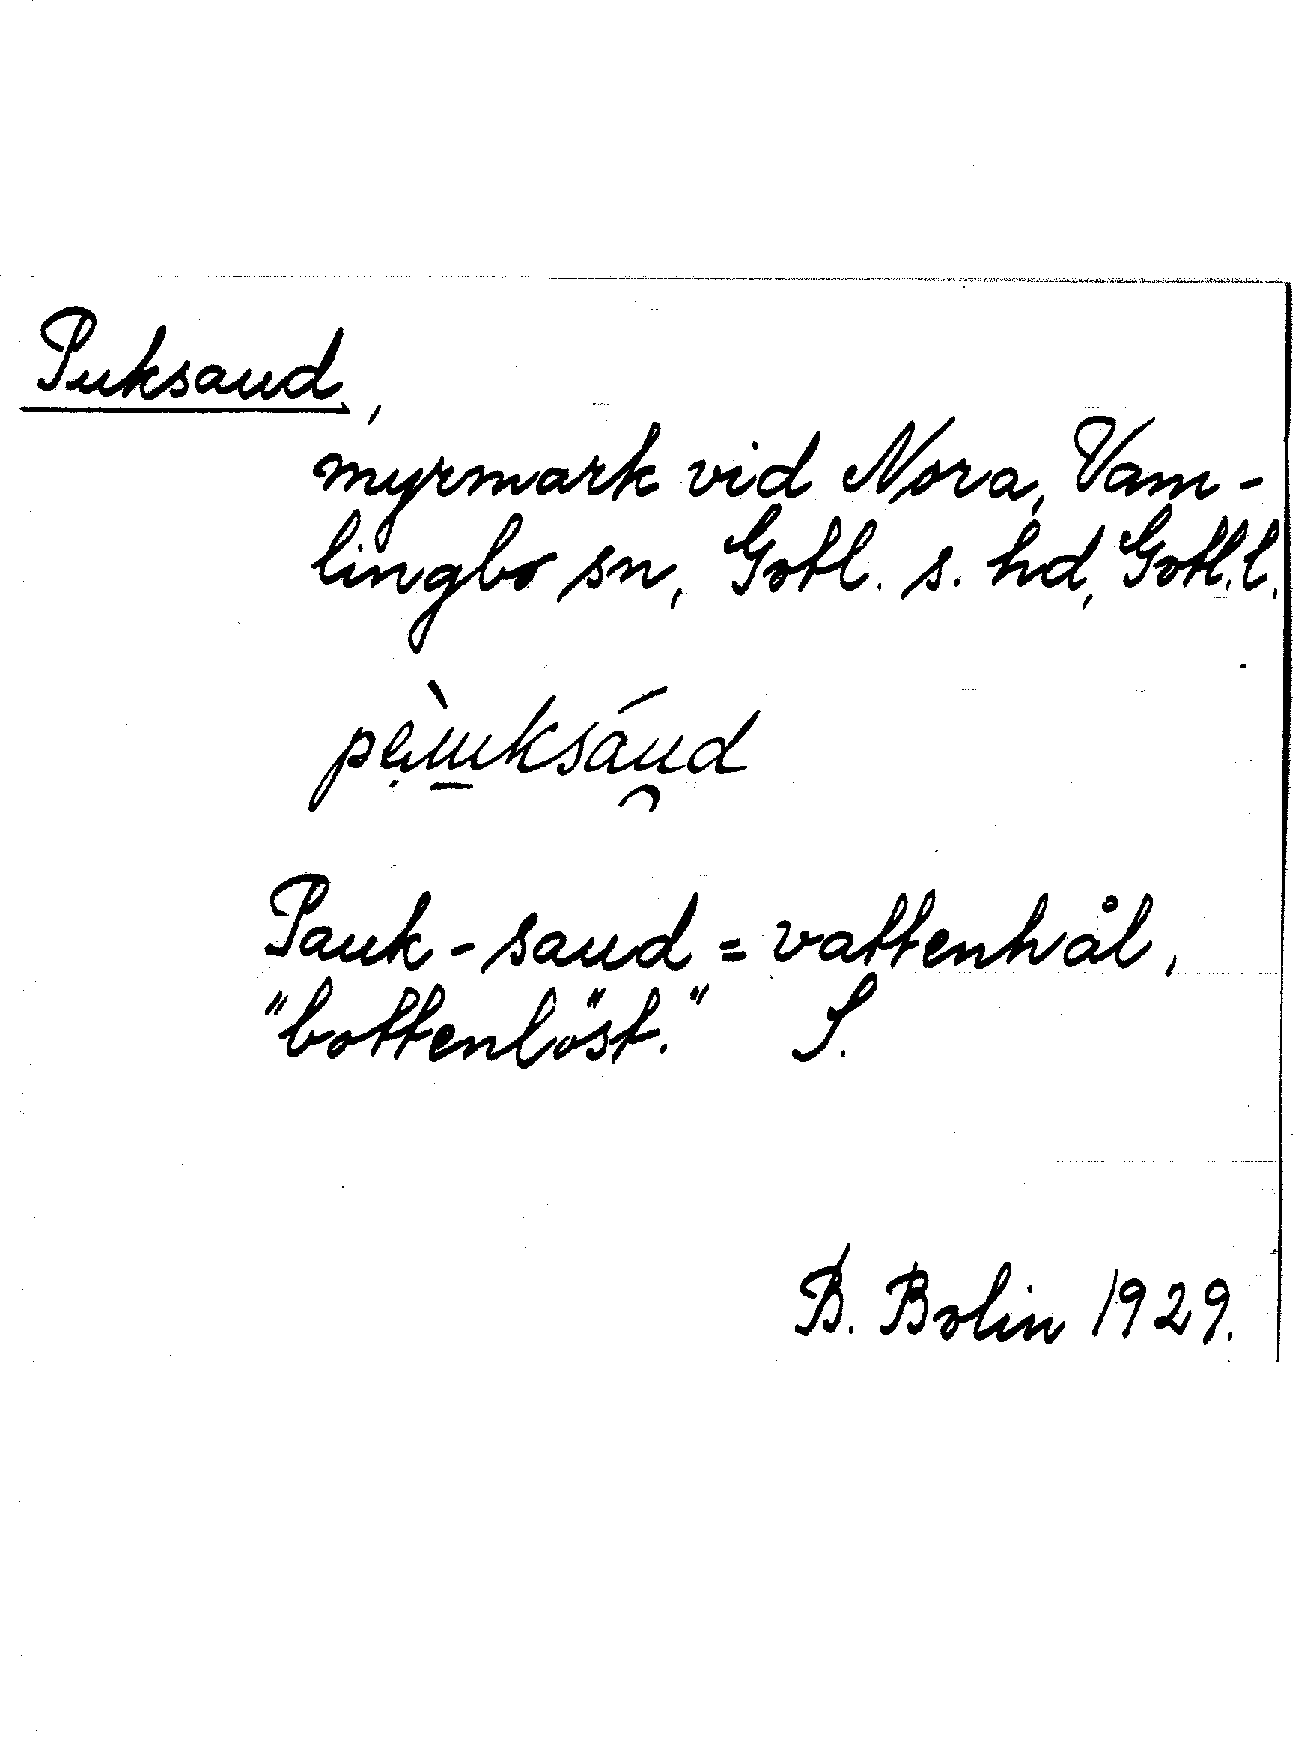 Puksaud,
myrmark vid Nora, Vam-
lingbo sn, Gotl. s. hd, Gotl. l.
pẹ̀u̱ksáu̯d
Pauk-saud = vattenhål,
"bottenlöst." S.
B. Bolin 1929.